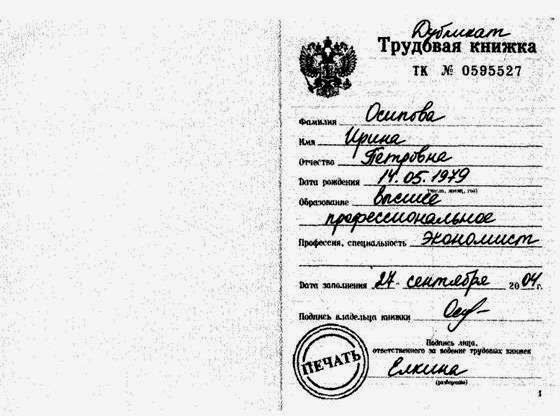 Дубликат
Трудовая книжка
ТК № 0595527
Фамилия Осипова
Имя Ирина
Отчество Петровна
Дата рождения 14.05.1979
(число, месяц, год)
Образование высшее
профессиональное
Профессия, специальность экономист
Дата заполнения 27 сентября 2004 г.
Подпись владельца книжки Осип
ПЕЧАТЬ
Подпись лица,
ответственного за ведение трудовых книжек
Елкина
(разборчиво)
1